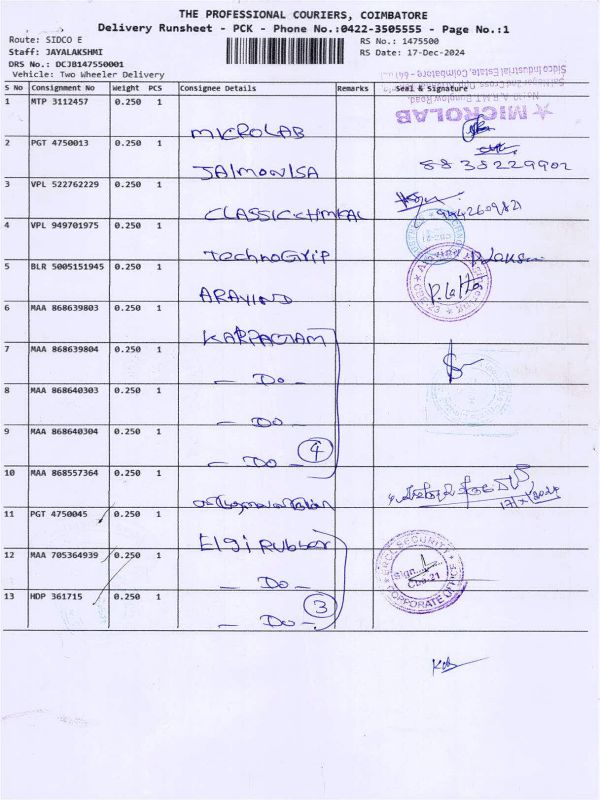 THE PROFESSIONAL COURIERS, COIMBATORE
Delivery Runsheet - PCK - Phone No.:0422-3505555 - Page No.:1
Route: SIDCO E
Staff: JAYALAKSHMI
DRS No.: DCJB147550001
Vehicle: Two Wheeler Delivery
RS No.: 1475500
RS Date: 17-Dec-2024
S No Consignment No Weight PCS Consignee Details Remarks Seal & Signature
★ MICROLAB
1 MTP 3112457 0.250 1 MICROLAB
2 PGT 4750013 0.250 1 JAIMONISA 8838229902
3 VPL 522762229 0.250 1 CLASSIC CHMICAL 9442609821
4 VPL 949701975 0.250 1 TechnoGrip
5 BLR 5005151945 0.250 1 ARAVIND P. Latha
6 MAA 868639803 0.250 1 KARPAGAM
7 MAA 868639804 0.250 1 - Do -
8 MAA 868640303 0.250 1 - Do -
9 MAA 868640304 0.250 1 - Do - 4
10 MAA 868557364 0.250 1
11 PGT 4750045 0.250 1 Elgi Rubber
12 MAA 705364939 0.250 1 - Do -
13 HDP 361715 0.250 1 - Do - 3
SECURITY
Sign
Cbe-21
CORPORATE OFFICE